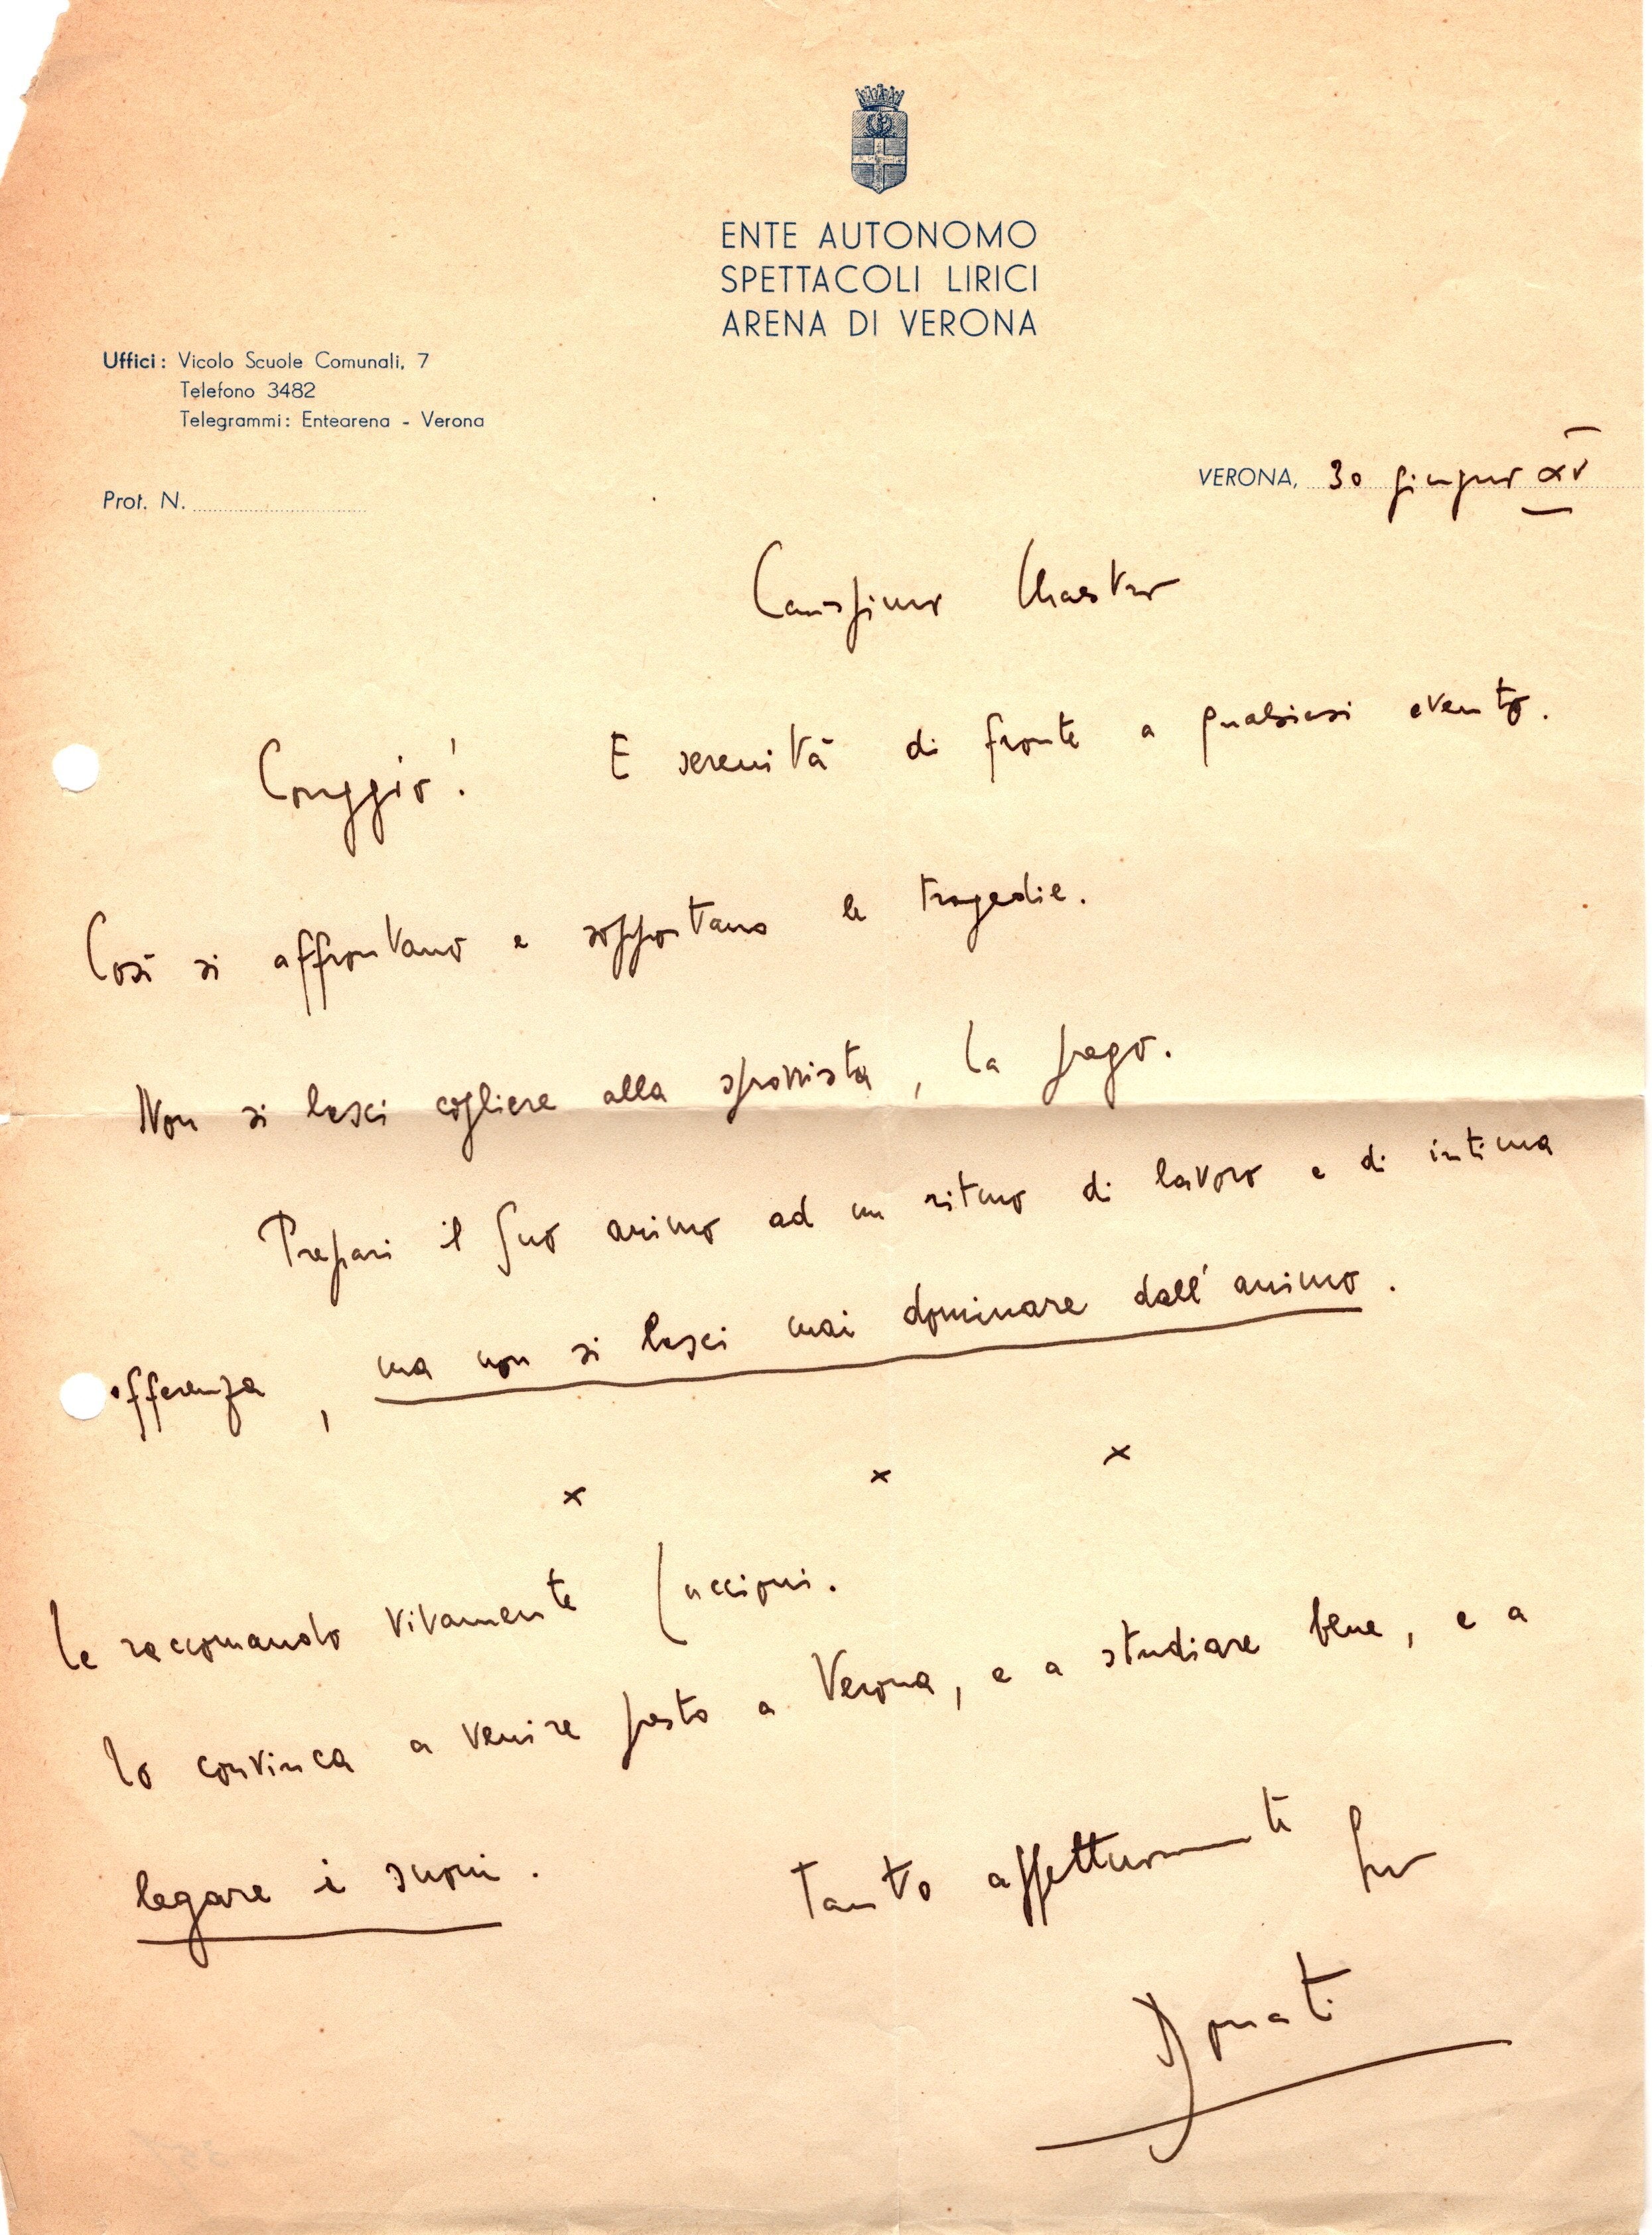 ENTE AUTONOMO
SPETTACOLI LIRICI
ARENA DI VERONA
Uffici: Vicolo Scuole Comunali, 7
Telefono 3482
Telegrammi: Entearena - Verona
Prot. N.
VERONA, 30 giugno XV
Carissimo Maestro
Coraggio! E serenità di fronte a qualsiasi evento.
Così si affrontano e sopportano le tragedie.
Non si lasci cogliere alla sprovvista, la prego.
Prepari il Suo animo ad un ritmo di lavoro e di intima
offerenza, ma non si lasci mai dominare dall'animo.
x x x
Le raccomando vivamente Luccioni.
Lo convinca a venire presto a Verona, e a studiare bene, e a
legare i suoni.
Tanto affettuosamente Suo
Donati